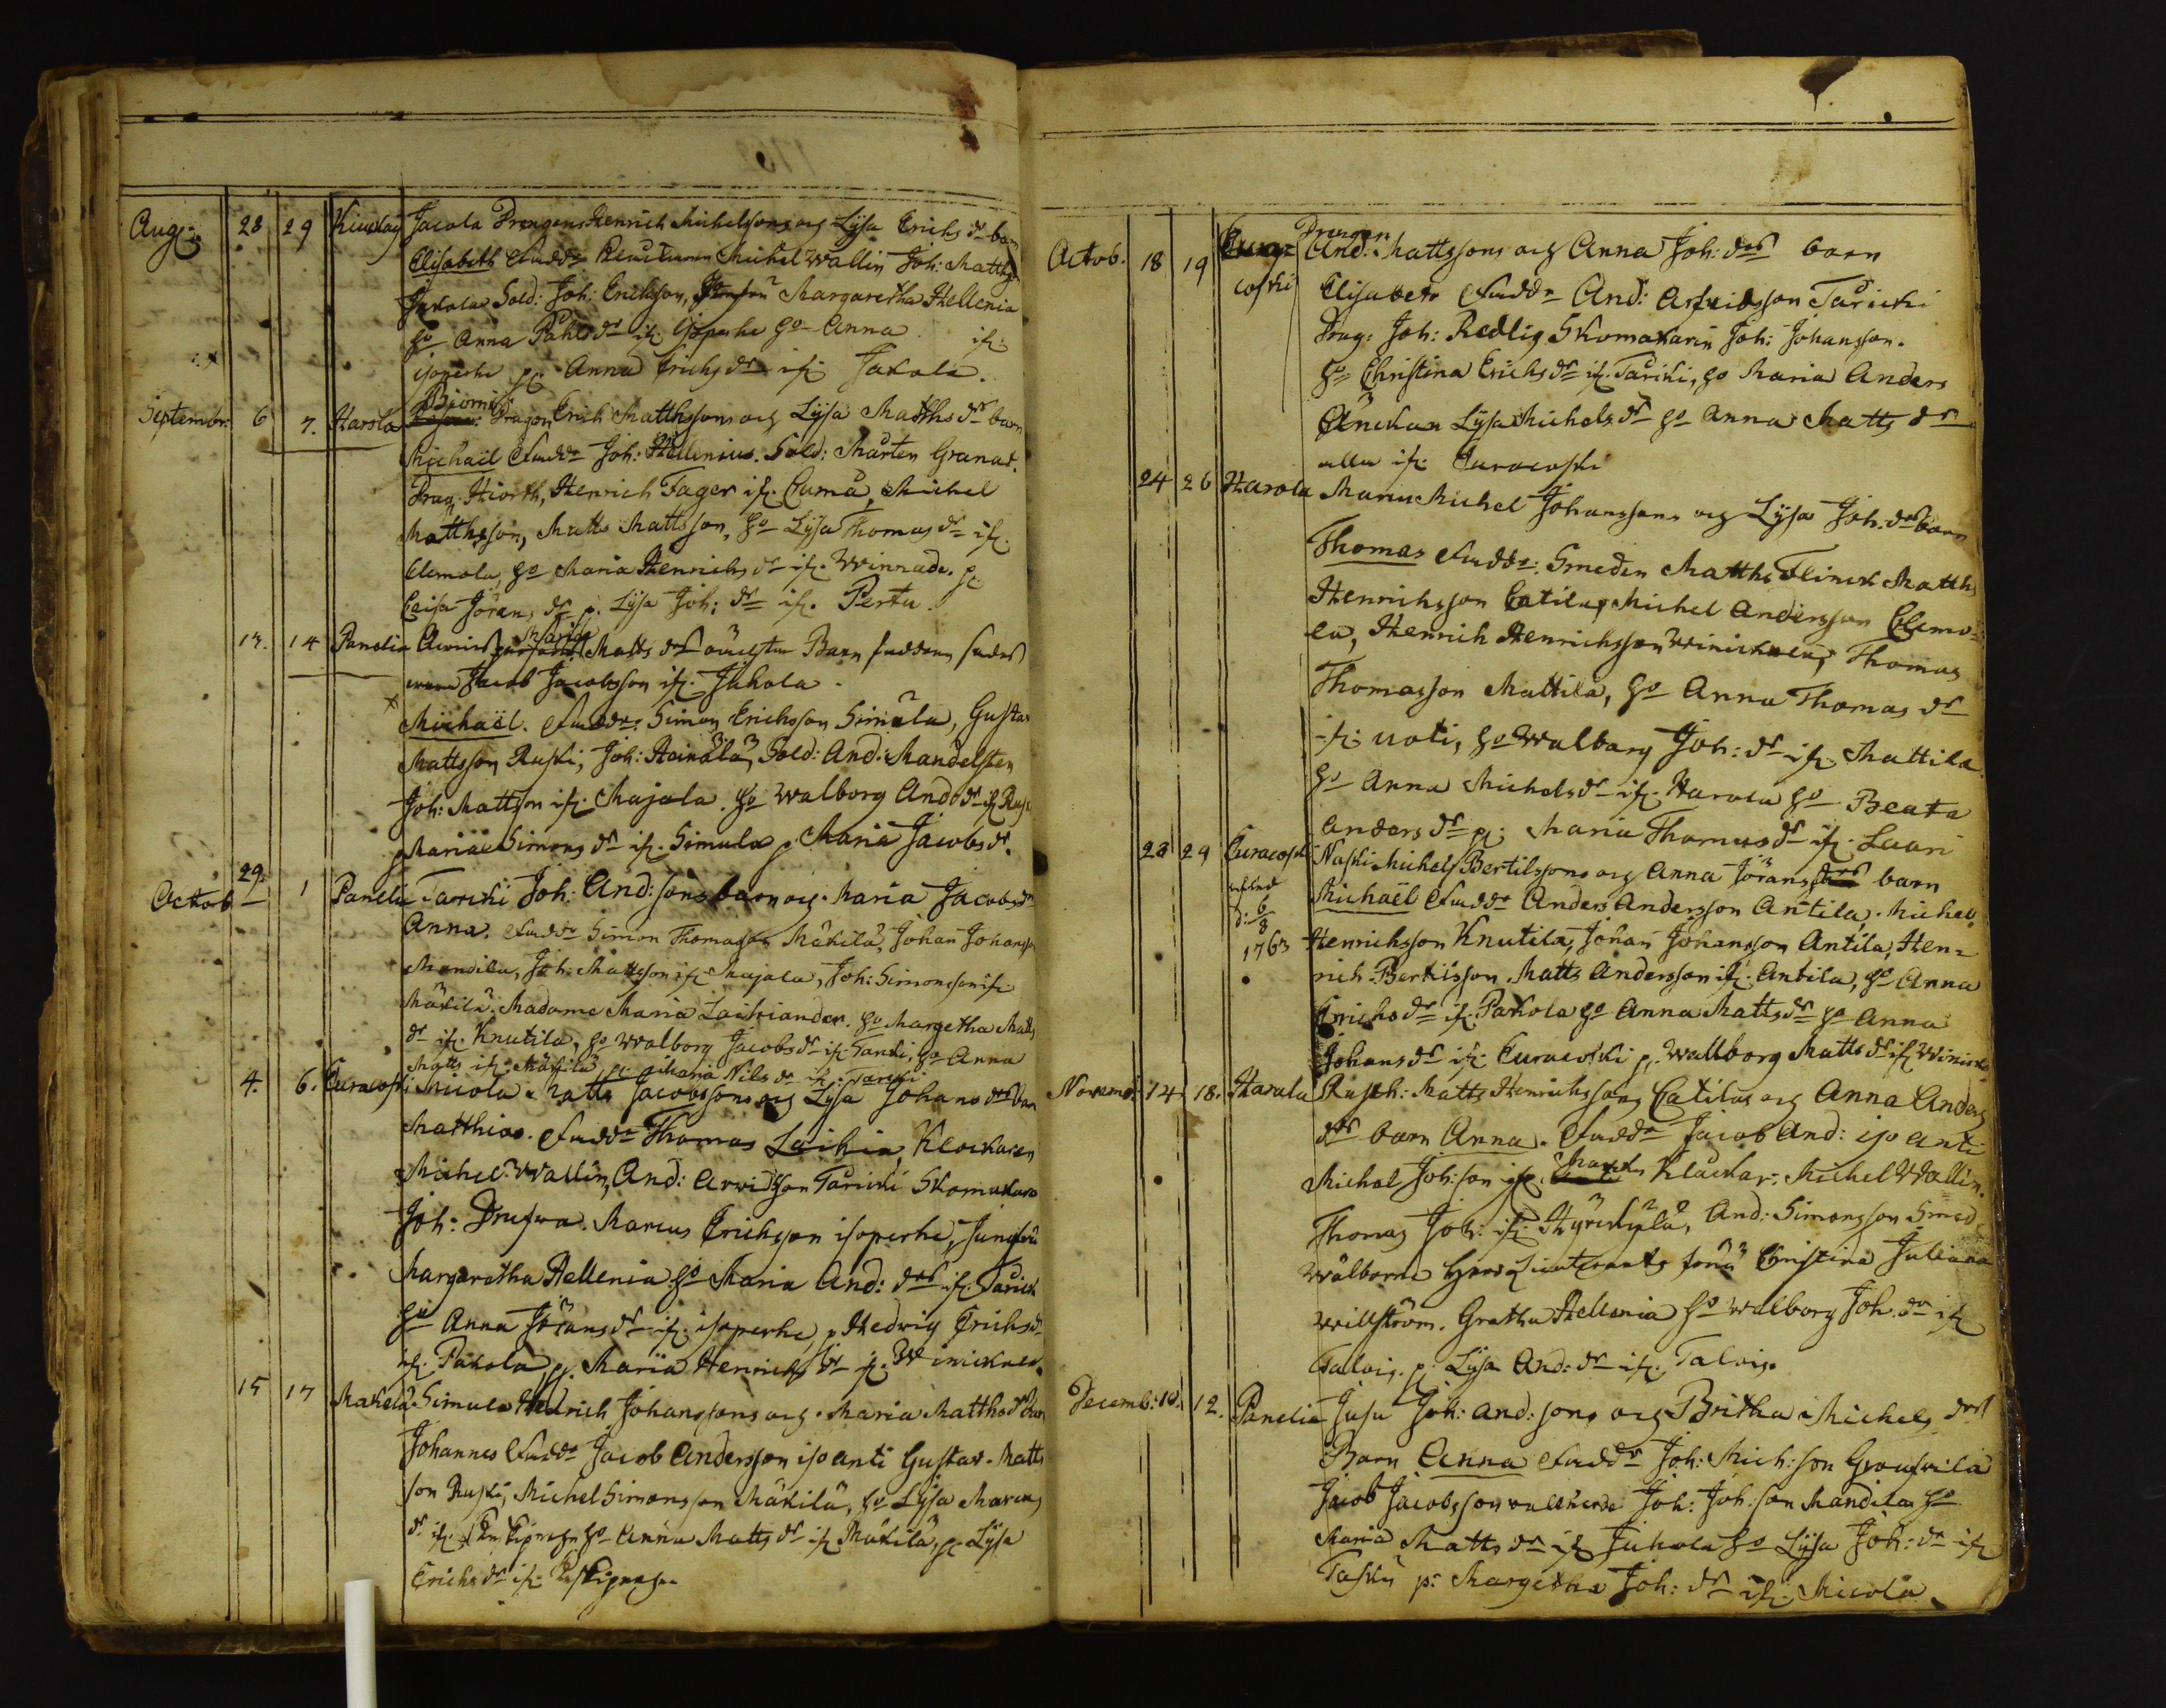 Aug: 28 29 Kiukais Jacola Drengens Henrich Michelsons och Lysa Erichs dr barn
Elisabeth Fadd: Michel Wallin Joh: Matths
Jakola Sold: Joh: Erichson, Margaretha Hellenia
ho Anna Påhls dr if: Isoperhe ho Anna if:
isoperhe p: Anna Erichs dr if: Jakola.
Septembr: 6 7. Harola Biörnis Dragon Erich Matthssons och Lysa Matths dr barn
Michaël Fadd: Joh: Hellenius. Sold: Mårten Granat.
Drag: Hiorth, Henrich Fager if: Cumå, Michel
Matthsson, Matts Mattsson, ho Lysa Thomas dr if:
Clemola, ho Maria Henrichs dr if: Winnada. p:
Caisa Jörans dr p: Lysa Joh: dr if: Pertu.
13. 14 Panelia Maria Matts drs oächta Barn faddren
Jacob Jacobsson if: Jakola.
Michaël. Fadd: Simon Erichsson Simula, Gustav
Mattsson Ruski, Joh: Heinälä, Sold: And: Mandelsten
Joh: Mattson if: Majala. ho Walborg And: dr if: Ruski
p Maria Simons dr if: Simula p Maria Jacobs dr.
Octob 29. 1 Panelia Tarcki Joh: And:sons barn och Maria Jacobs dr
Anna. Fadd: Simon Thomasson Mäkilä, Johan Johansson
Mandila, Joh: Mattsson if: Majala, Joh: Simonsson if:
Mäkilä. Madame Maria Laihiander. ho Margetha Matts
dr if: Knutila, ho Walborg Jacobs dr if: Tarcki, ho Anna
Matts if: Mäkilä p: Maria Nils dr if: Tarcki
4. 6. Euracoski Micola Matts Jacobssons och Lysa Johans drs barn
Matthias. Fadd: Thomas Laihia, Klockaren
Michel Wallin, And: Arvidsson Taricki Skomakare
Joh: Drufva. Marcus Erichsson isoperhe, Jungfru
Margaretha Hellenia ho Maria And: drs if: Tarick
ho Anna Jörans dr if: isoperhe, p Hedvig Erichs dr
if: Pakola, p: Maria Henrichs dr if: Winickala
15 17 Makelä Simula Hedrich Johanssons och Maria Matths dr Barn
Johannes Fadd: Jacob Andersson iso anti Gustav Matts
son Ruski, Michel Simonsson Mäkilä, ho Lysa Marcus
dr if: ho Anna Matts dr if: Mäkilä, p: Lysa
Erichs dr if:
Octob. 18 19 Eura-
coski Drengen And: Mattssons och Anna Joh: drs barn
Elisabeta Fadd: And: Arfvidsson Taricki
Drag: Joh: Redlig Skomakarin Joh: Johansson.
ho Christina Erichs dr if: Taricki, ho Maria Anders
Änckan Lysa Michels dr ho Anna Matts dr
alla if: Euracoski
24 26 Harola Manu Michel Johanssons och Lysa Joh: dr barn
Thomas Fadd: Smeden Matths Flinck Matths
Henrichsson Catilus, Michel Andersson Clemo-
la, Henrich Henrichsson Winickala, Thomas
Thomasson Mattila, ho Anna Thomas dr
if: uoti, ho Walborg Joh: dr if: Mattila.
ho Anna Michels dr if: Harola ho Beata
Anders dr p: Maria Thomas dr if: Lauri
28 29 Euracoski Naski Michels Bertilssons och Anna Jörans drs barn
d: 6/8
1763
Michaël Fadd: Anders Andersson Antila, Michel
Henrichsson Knutila, Johan Johansson Antila, Hen-
rich Bertilsson. Matts Andersson if: Antila, ho Anna
Erichs dr if: Pakola ho Anna Matts dr ho Anna
Johans dr if: Euracoski p: Wallborg Matts dr if:
Novemb: 14 18. Harola Rusth: Matts Henrichssons Catilus och Anna Anders
drs barn Anna. Fadd: Jacob And: iso anti
Michel Joh:son if: Klåckar: Michel Wallin.
Thomas Joh: if: And: Simonsson Smed
Wälborne Herr Lieutenants Christina Juliana
Willström. Gretha Hellenia ho Walborg Joh: dr if:
Talvis. p: Lysa And: dr if: Talvis.
Decemb: 10. 12. Panelia Jusu Joh: And:sons och Britha Michels drs
Barn Anna Fadd: Joh: Mich:son
Jacob Jacobsson Joh: Joh:son Mandila ho
Maria Matts dr if: Jakola ho Lysa Joh: dr if:
p: Margetha Joh: dr if: Micola.